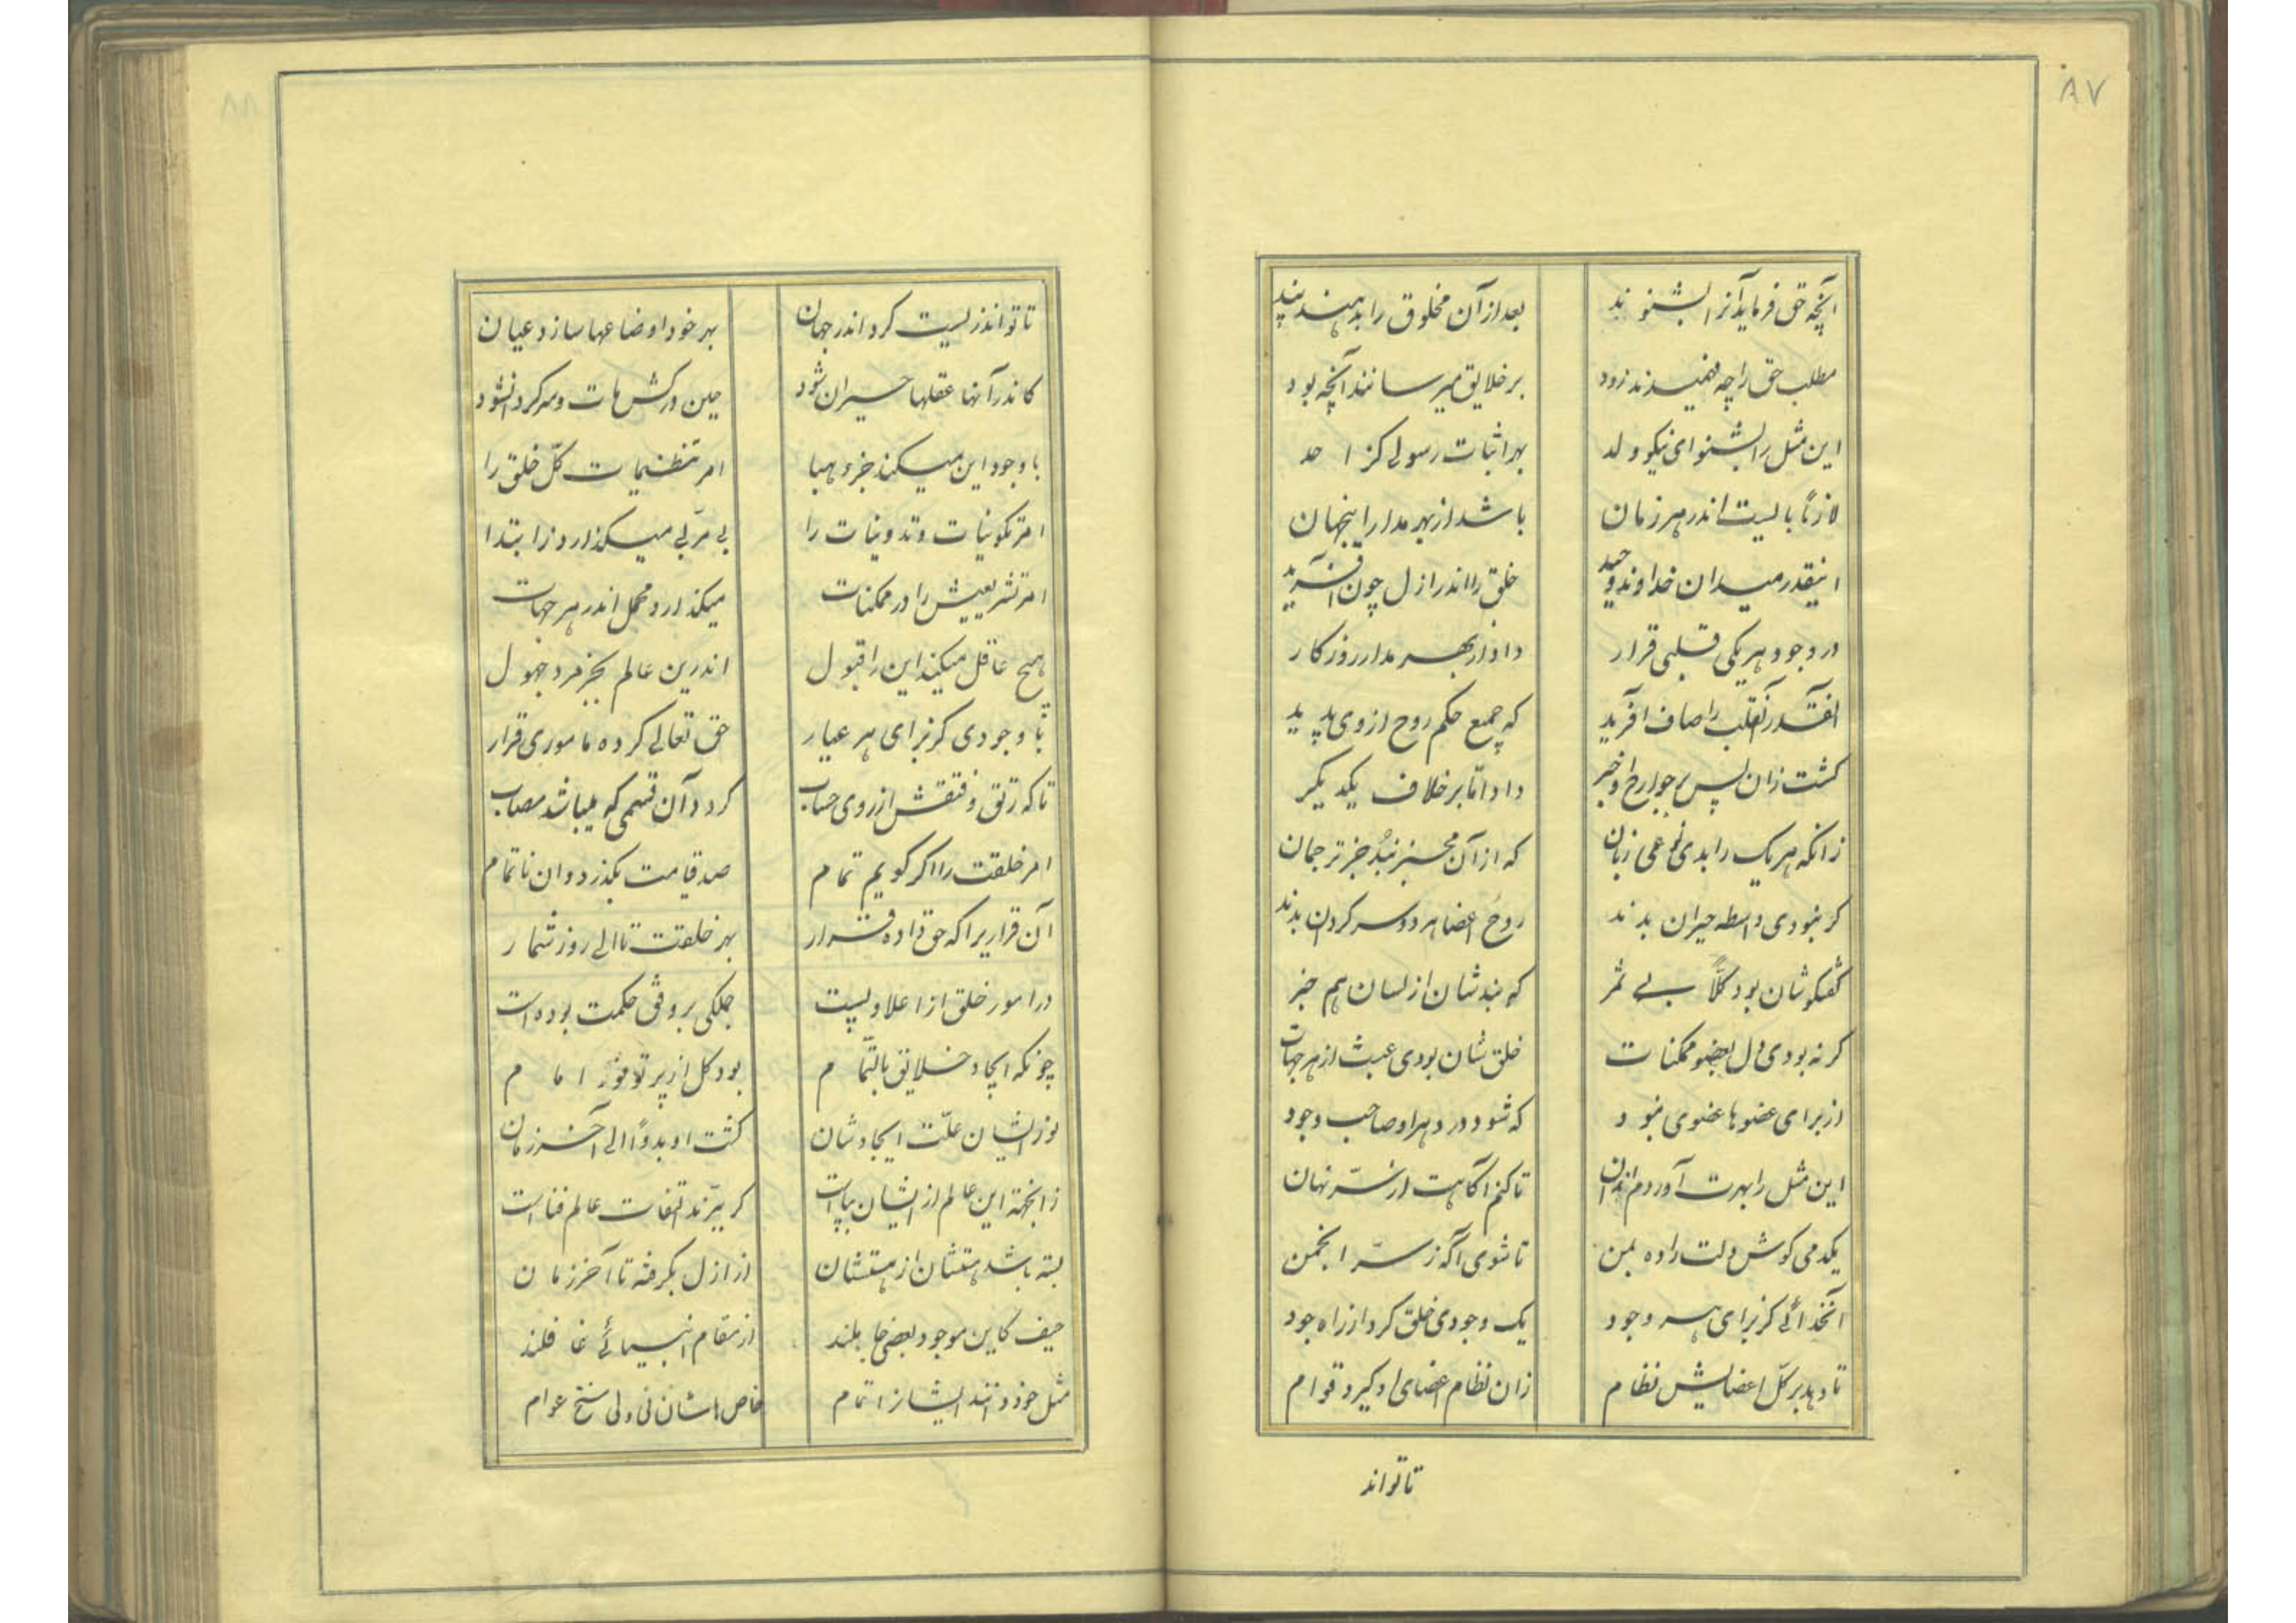 ۸۷
آنچه حق فرماید آنرا بشنوند بعد از آن مخلوق را بدهند پند
مطلب حق را چه فهمیدند زود بر خلایق میرسانند آنچه بود
این مثل را بشنو ای نیکو ولد بهر اثبات رسولی کز احد
لازماً بایست اندر هر زمان باشد از بهر مدار اینجهان
اینقدر میدان خداوند وحید خلق را اندر ازل چون آفرید
در وجود هر یکی قلبی قرار داد از بهر مدار روزکار
آنقدر آنقلب را صاف آفرید که جمیع حکم روح از وی پدید
کشت زان پس بر جوارح او خبر داد اما بر خلاف یکدیکر
زانکه هر یک را بدی نوعی زبان که از آن مخبر نبد جز ترجمان
کر نبودی واسطه حیران بدند روح اعضا هر دو سرکردان بدند
کفتکوشان بود کلاً بی ثمر که نبدشان از لسان هم خبر
کر نه بودی دل بعضو ممکنات خلق شان بودی عبث از هر جهات
از برای عضوها عضوی نبود که شود در دهر او صاحب وجود
این مثل را بهرت آوردم بدان تا کنم آکاهت از سرّ نهان
یکدمی کوش دلت را ده بمن تا شوی آکه ز سرّ انجمن
آنخدائی کز برای هر وجود یک وجودی خلق کرد از راه جود
تا دهد بر کلّ اعضایش نظام زان نظام اعضای او کیرد قوام
تا تواند
۸۸
تا تواند زیست کرد اندر جهان بهر خود اوضاعها سازد عیان
کاندر آنها عقلها حیران شود حین درکش مات و سرکردان شود
با وجود این میکند جزو هبا امر تنظیمات کلّ خلق را
امر تکوینات و تدوینات را بی مربّی میکذارد ز ابتدا
امر تشریعیش را در ممکنات میکذارد مهمل اندر هر جهات
هیچ عاقل میکند این را قبول اندرین عالم بجز مرد جهول
با وجودی کز برای هر عیار حق تعالی کرده ماموری قرار
تا که رتق و فتقش از روی حساب کردد آن قسمی که میباشد صواب
امر خلقت را اکر کویم تمام صد قیامت بکذرد وان ناتمام
آن قراریرا که حق داده قرار بهر خلقت تا الی روز شمار
در امور خلق از اعلا و پست جملکی بر وفق حکمت بوده است
چونکه ایجاد خلایق بالتّمام بود کل از پرتو نور امام
نور ایشان علّت ایجادشان کشت او بدواً الی آخر زمان
زانجهة این عالم از ایشان بپاست کر ببرّند التفات عالم فناست
بسته باشد هستشان از هستشان از ازل بکرفته تا آخر زمان
حیف کاین موجود بعضی جاهلند از مقام انبیائی غافلند
مثل خود دانند ایشانرا تمام خاص هاشان نی ولی سنخ عوام